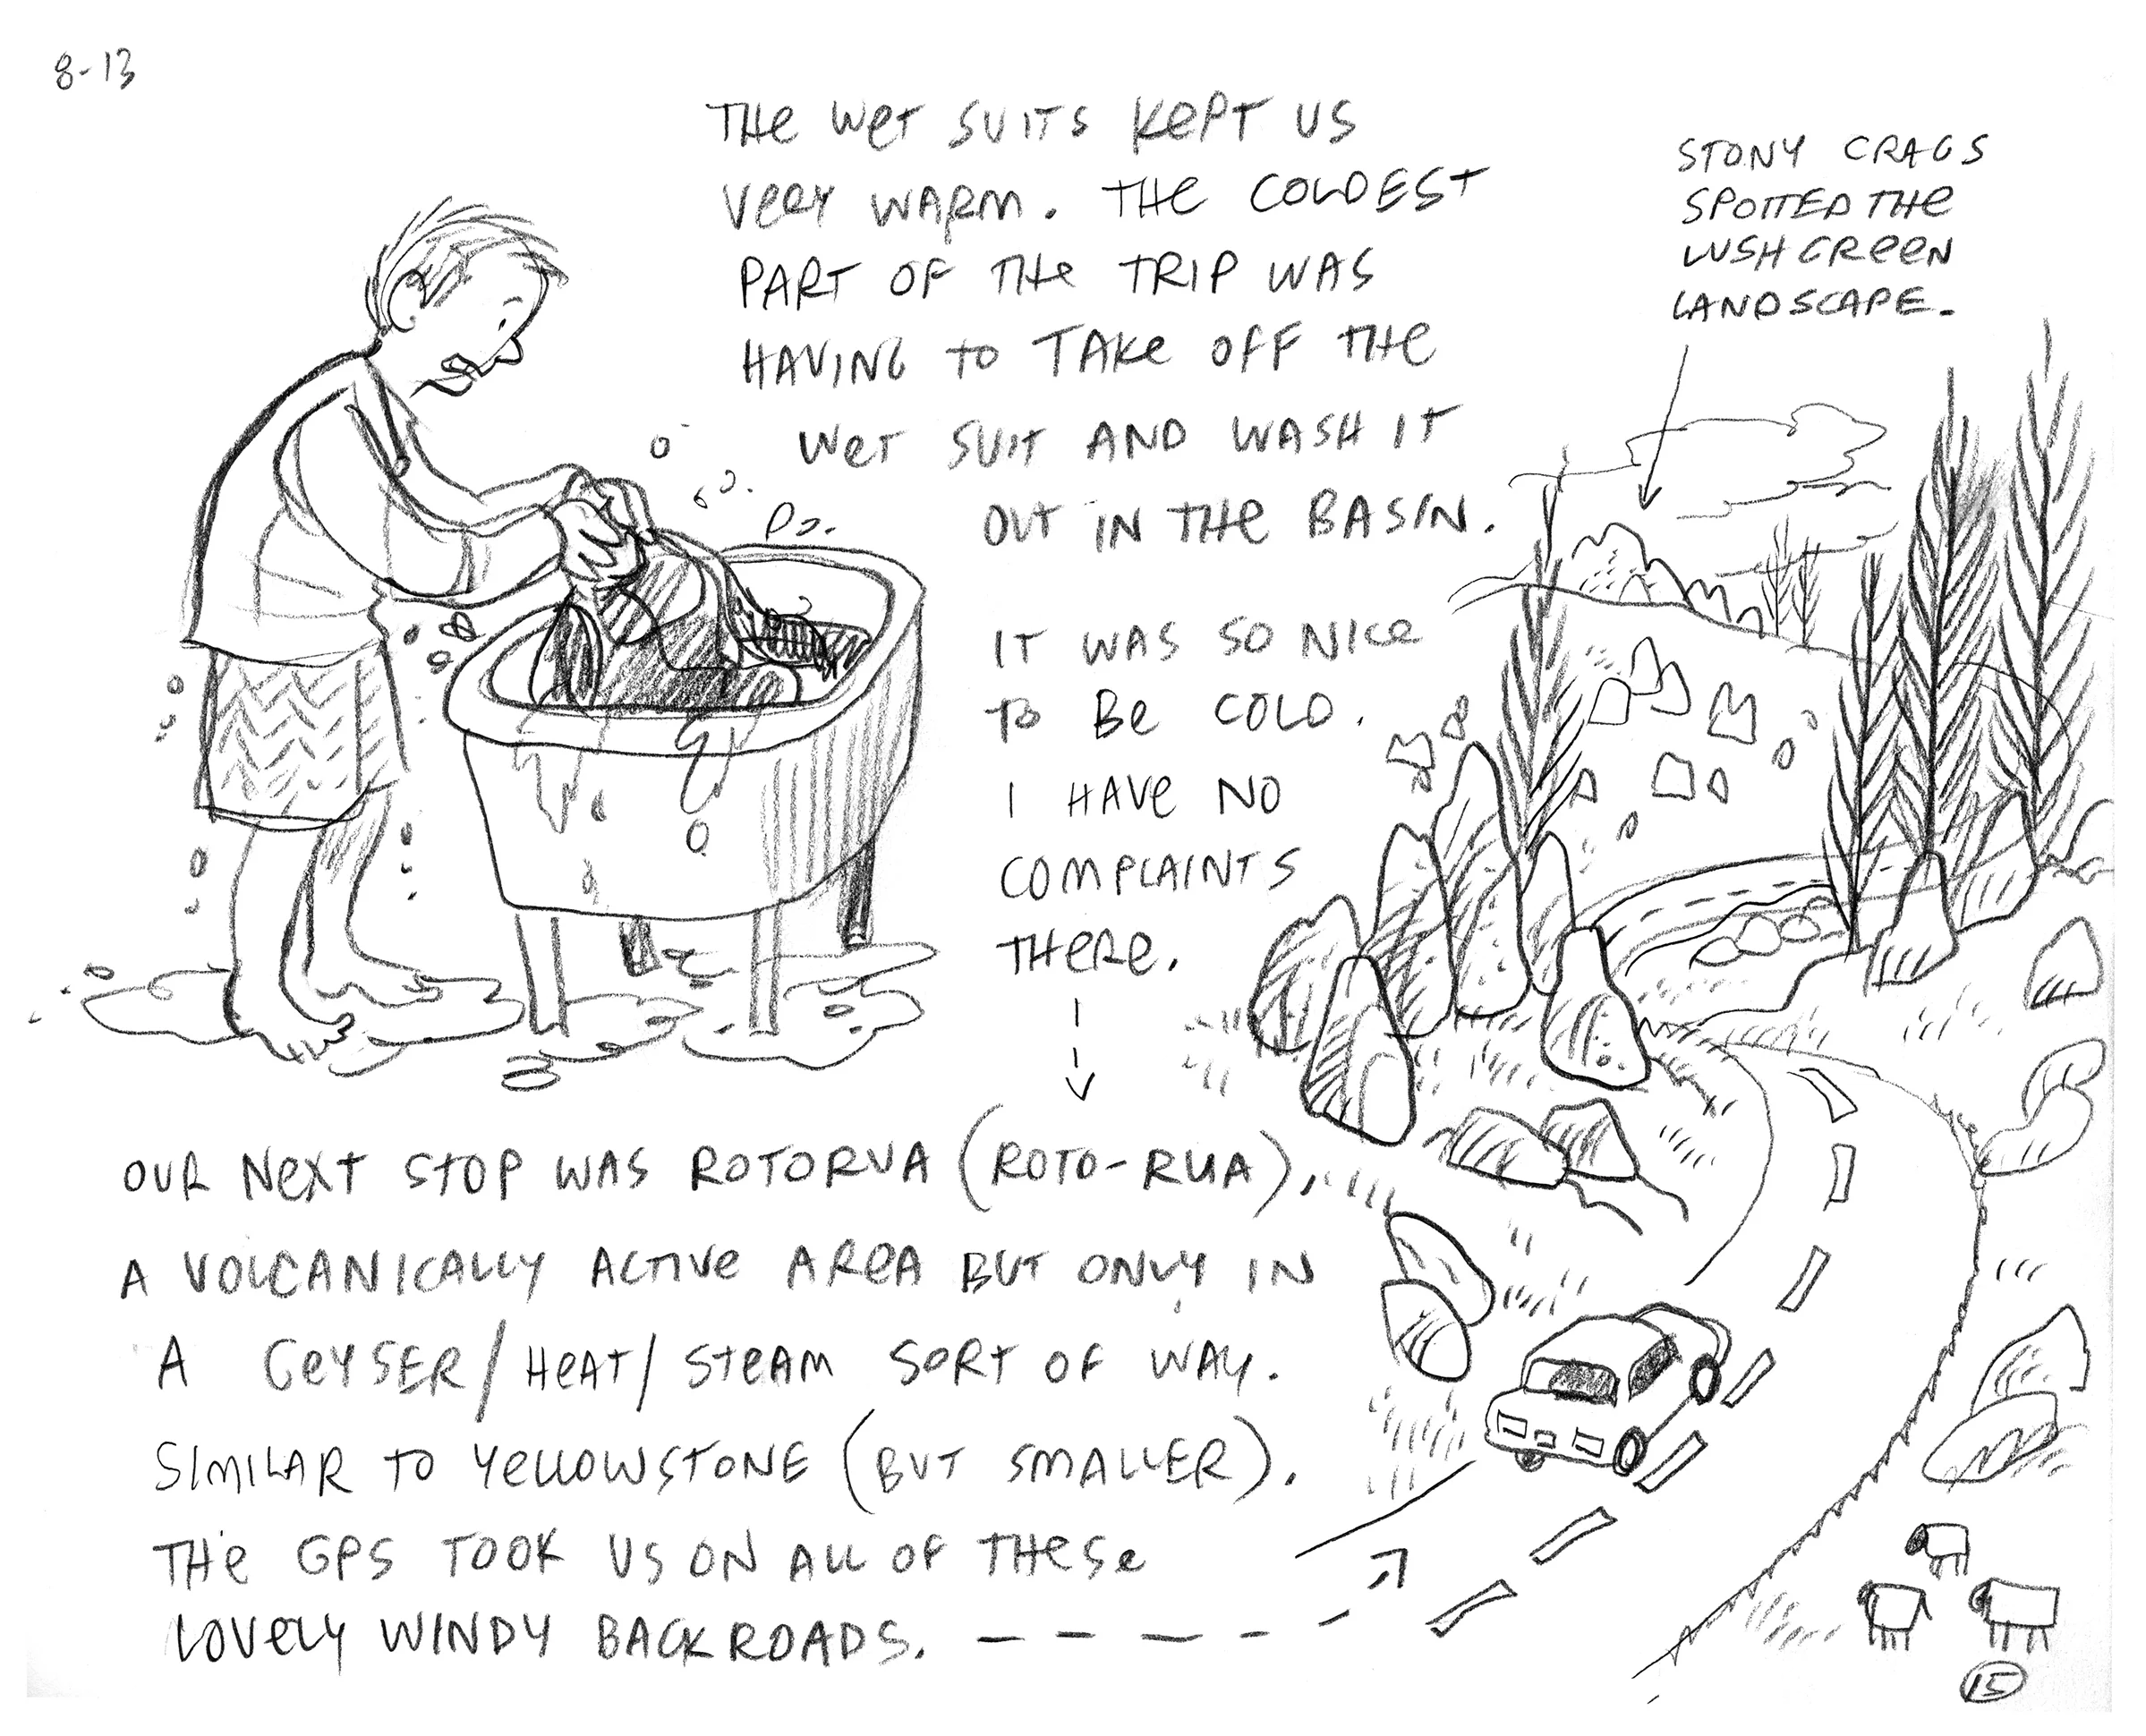 8-13
THE WET SUITS KEPT US
VERY WARM. THE COLDEST
PART OF THE TRIP WAS
HAVING TO TAKE OFF THE
WET SUIT AND WASH IT
OUT IN THE BASIN.
IT WAS SO NICE
TO BE COLD.
I HAVE NO
COMPLAINTS
THERE.
STONY CRAGS
SPOTTED THE
LUSH GREEN
LANDSCAPE.
OUR NEXT STOP WAS ROTORUA (ROTO-RUA),
A VOLCANICALLY ACTIVE AREA BUT ONLY IN
A GEYSER/HEAT/STEAM SORT OF WAY.
SIMILAR TO YELLOWSTONE (BUT SMALLER).
THE GPS TOOK US ON ALL OF THESE
LOVELY WINDY BACK ROADS.
15